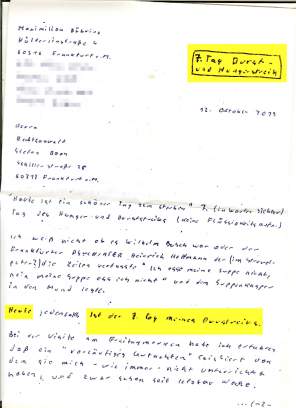 Maximilian Bähring
Hölderlinstraße 4
60316 Frankfurt a.M.
7. Tag Durst-
und Hungerstreik
12. Oktober 2023
Herrn
Rechtsanwalt
Stefan Bonn
60313 Frankfurt a.M.
Heute ist ein schöner Tag zum sterben"
Tag des Hunger- und Durststreiks (keine Flüssigkeit
Ich weiß nicht ob es Wilhelm Busch war oder der
Frankfurter Heinrich Hoffmann der
die Zeilen verfasste "Ich esse meine Suppe nicht,
nein meine Suppe ess ich nicht" und dem Suppenkasper
in den Mund legte.
Heute jedenfalls ist der 7. Tag meines Durststreiks.
Bei der Visite am Freitagmorgen habe ich erfahren
daß ein "vorläufiges Gutachten" existiert von
dem sie mich - wie immer - nicht unterrichtet
haben, und zwar schon seit letzter Woche.
...(-2-